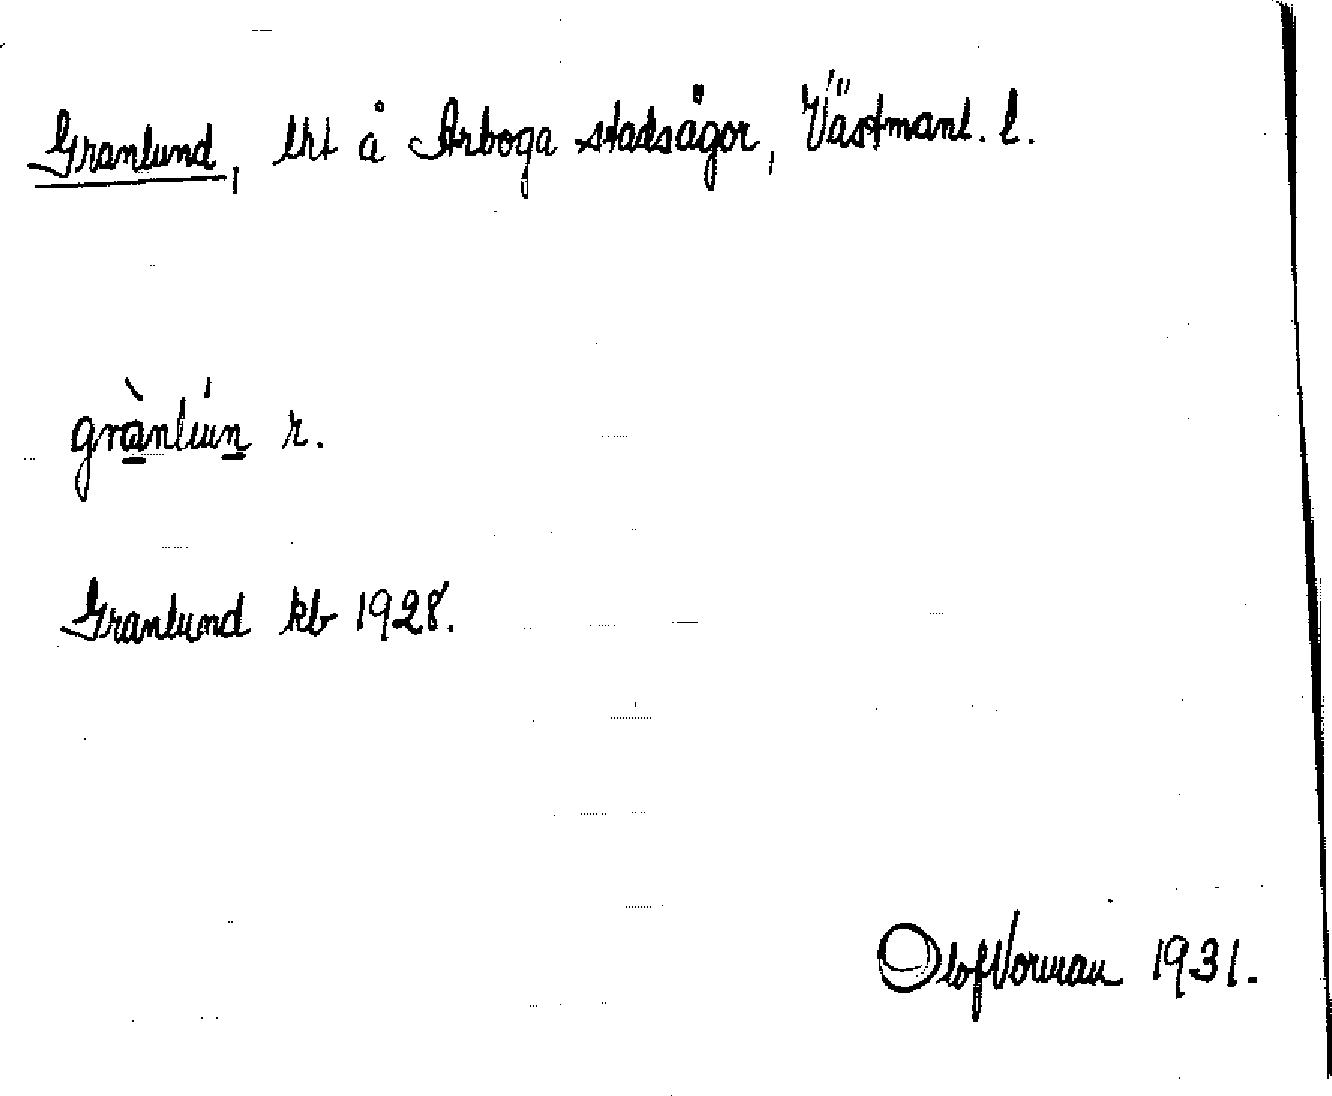 Granlund, lht å Arboga stadsägor, Västmanl. l.
grànlún r.
Granlund kb 1928.
Olof Norman 1931.